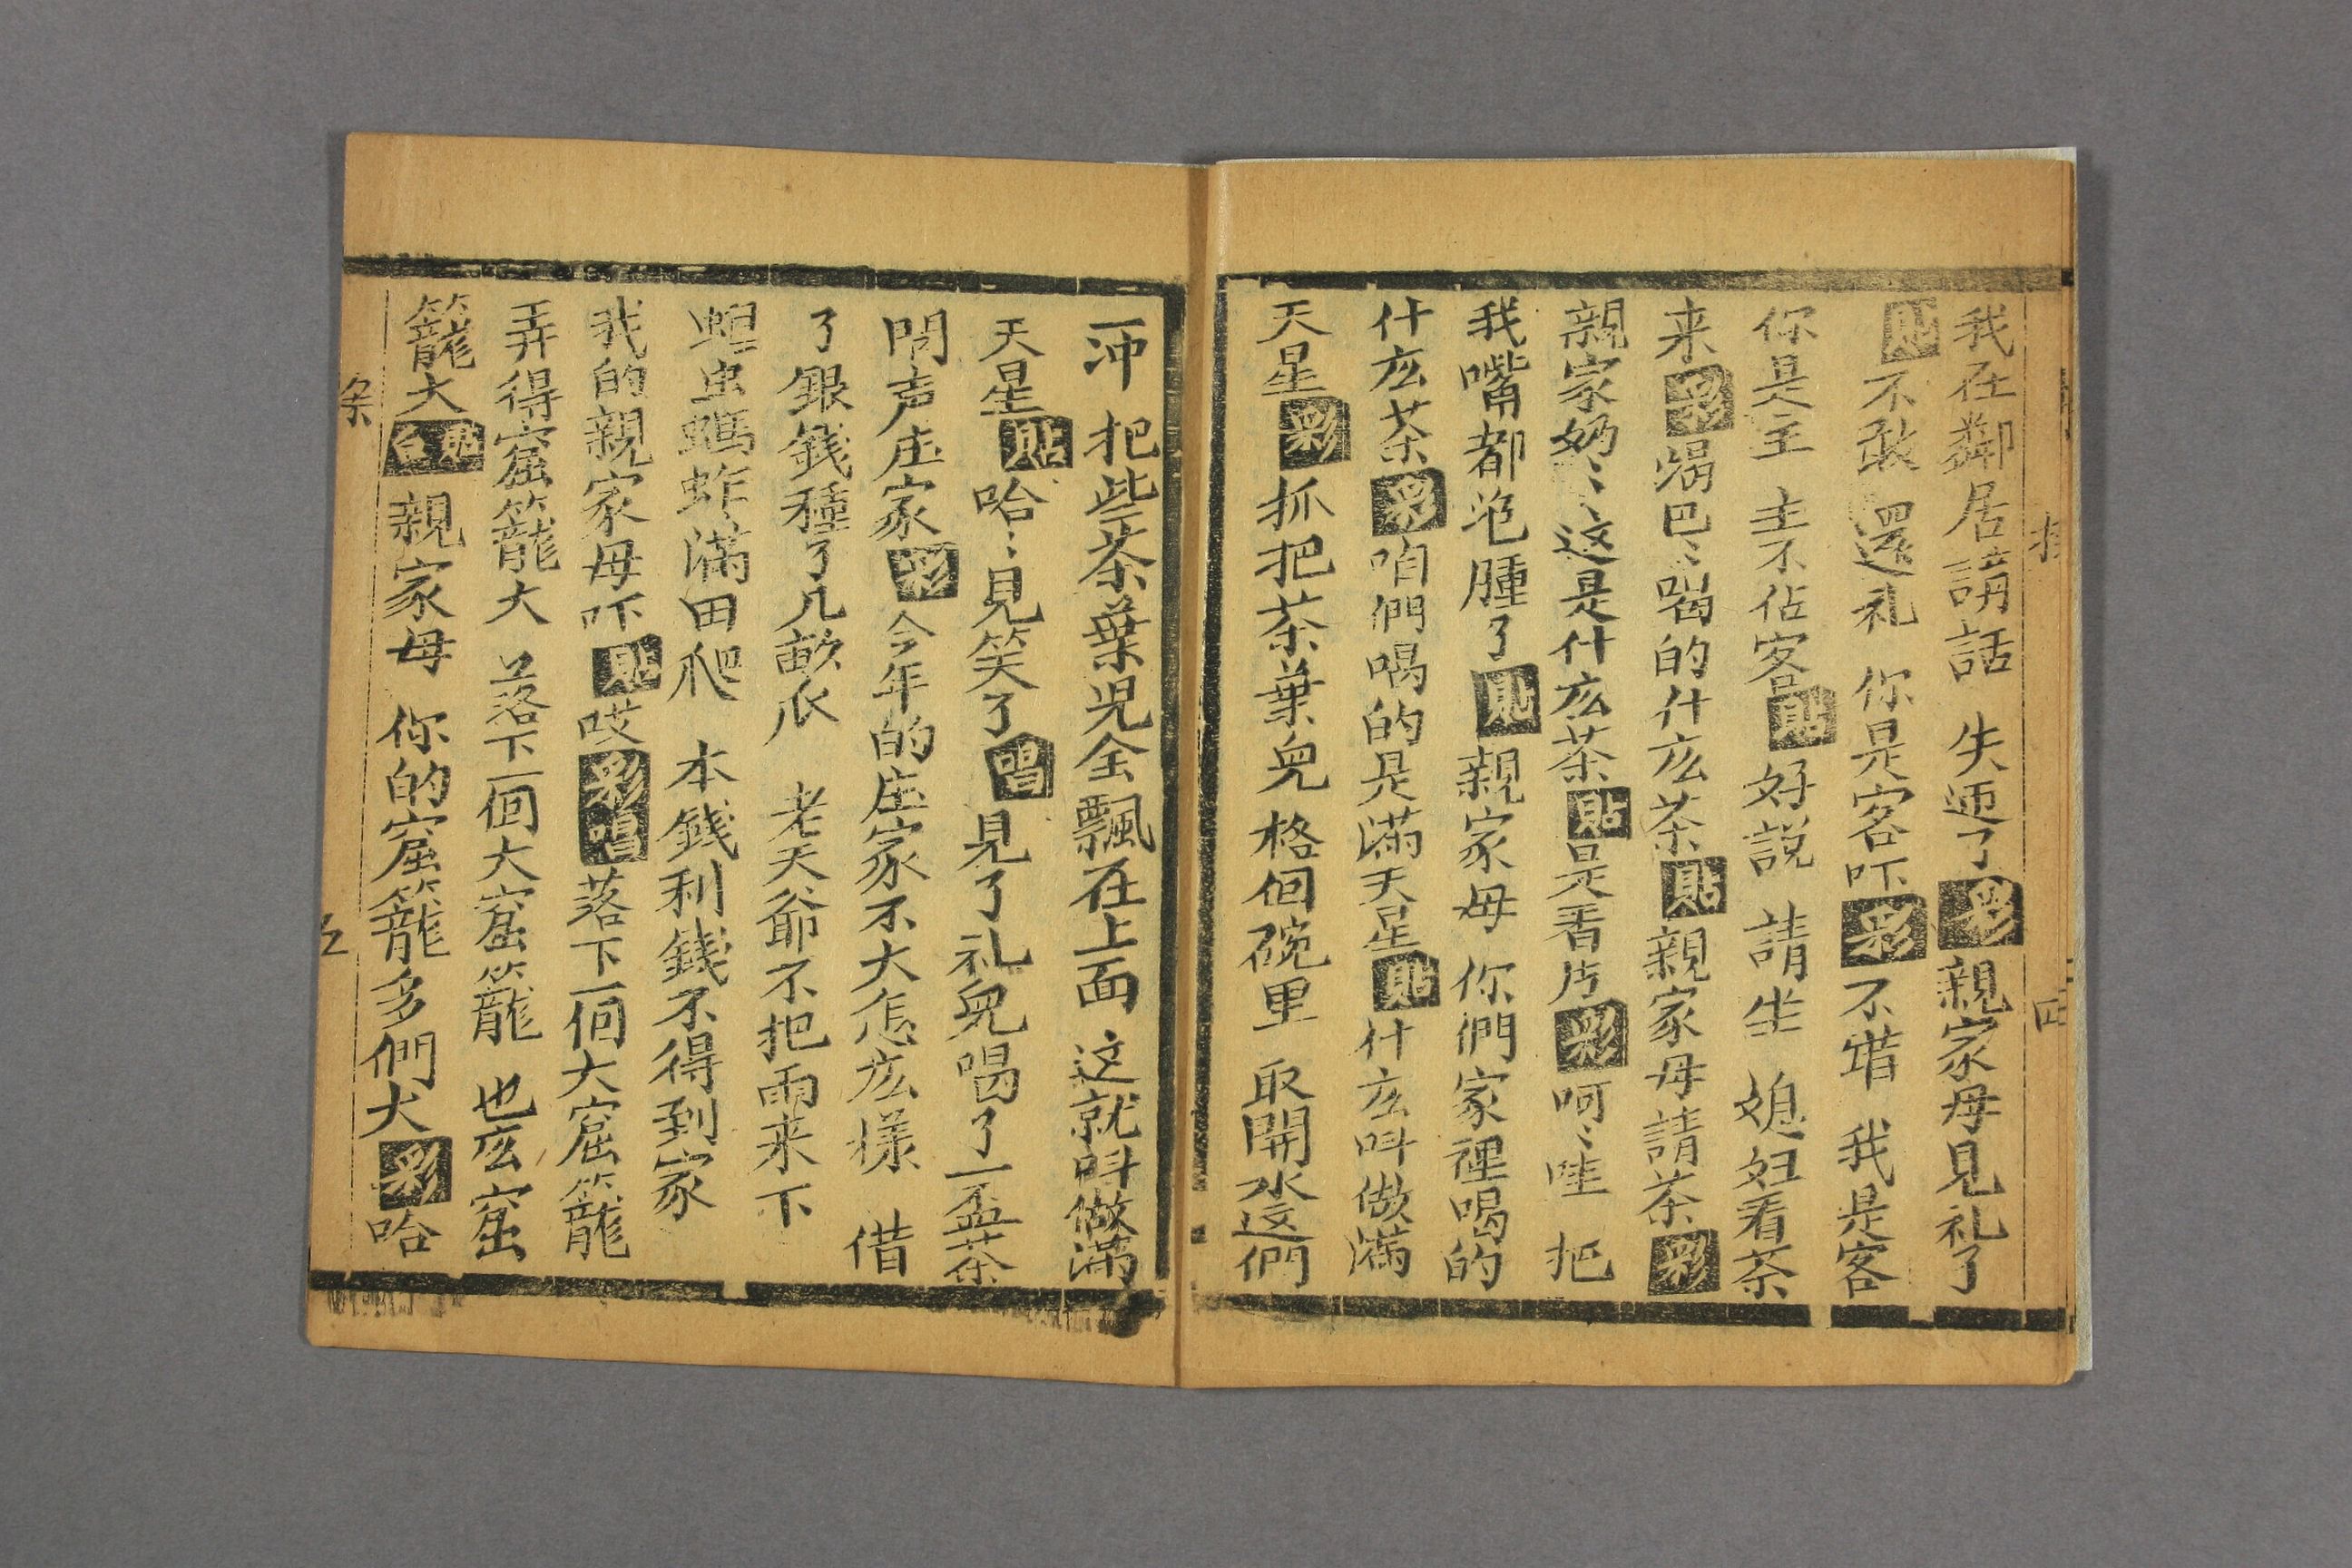 我在鄰居講話 失迎了 彩 親家母見礼了
貼 不敢 還礼 你是客吓 彩 不错 我是客
你是主 主不佔客 貼 好説 請坐 媳妇看茶
来 彩 焗巴〻喝的什庅茶 貼 親家母請茶 彩
親家奶〻这是什庅茶 貼 是香片 彩 呵〻哇 把
我嘴都泡腫了 貼 親家母 你們家裡喝的
什庅茶 彩 咱們喝的是滿天星 貼 什庅呌做滿
天星 彩 抓把茶葉兒 格個碗里 取開水这們
一沖 把些茶葉児全飄在上面 这就呌做滿
天星 貼 哈〻見笑了 唱 見了礼兒喝了一盃茶
問声庄家 彩 今年的庄家不大怎庅樣 借
了銀錢種了几畝瓜 老天爺不把雨来下
蛆虫螞蚱滿田爬 本錢利錢不得到家
我的親家母吓 貼 哎 彩唱 落下一個大窟籠
弄得窟籠大 落下一個大窟籠 也庅窟
籠大 貼白 親家母 你的窟籠多們大 彩 哈
五